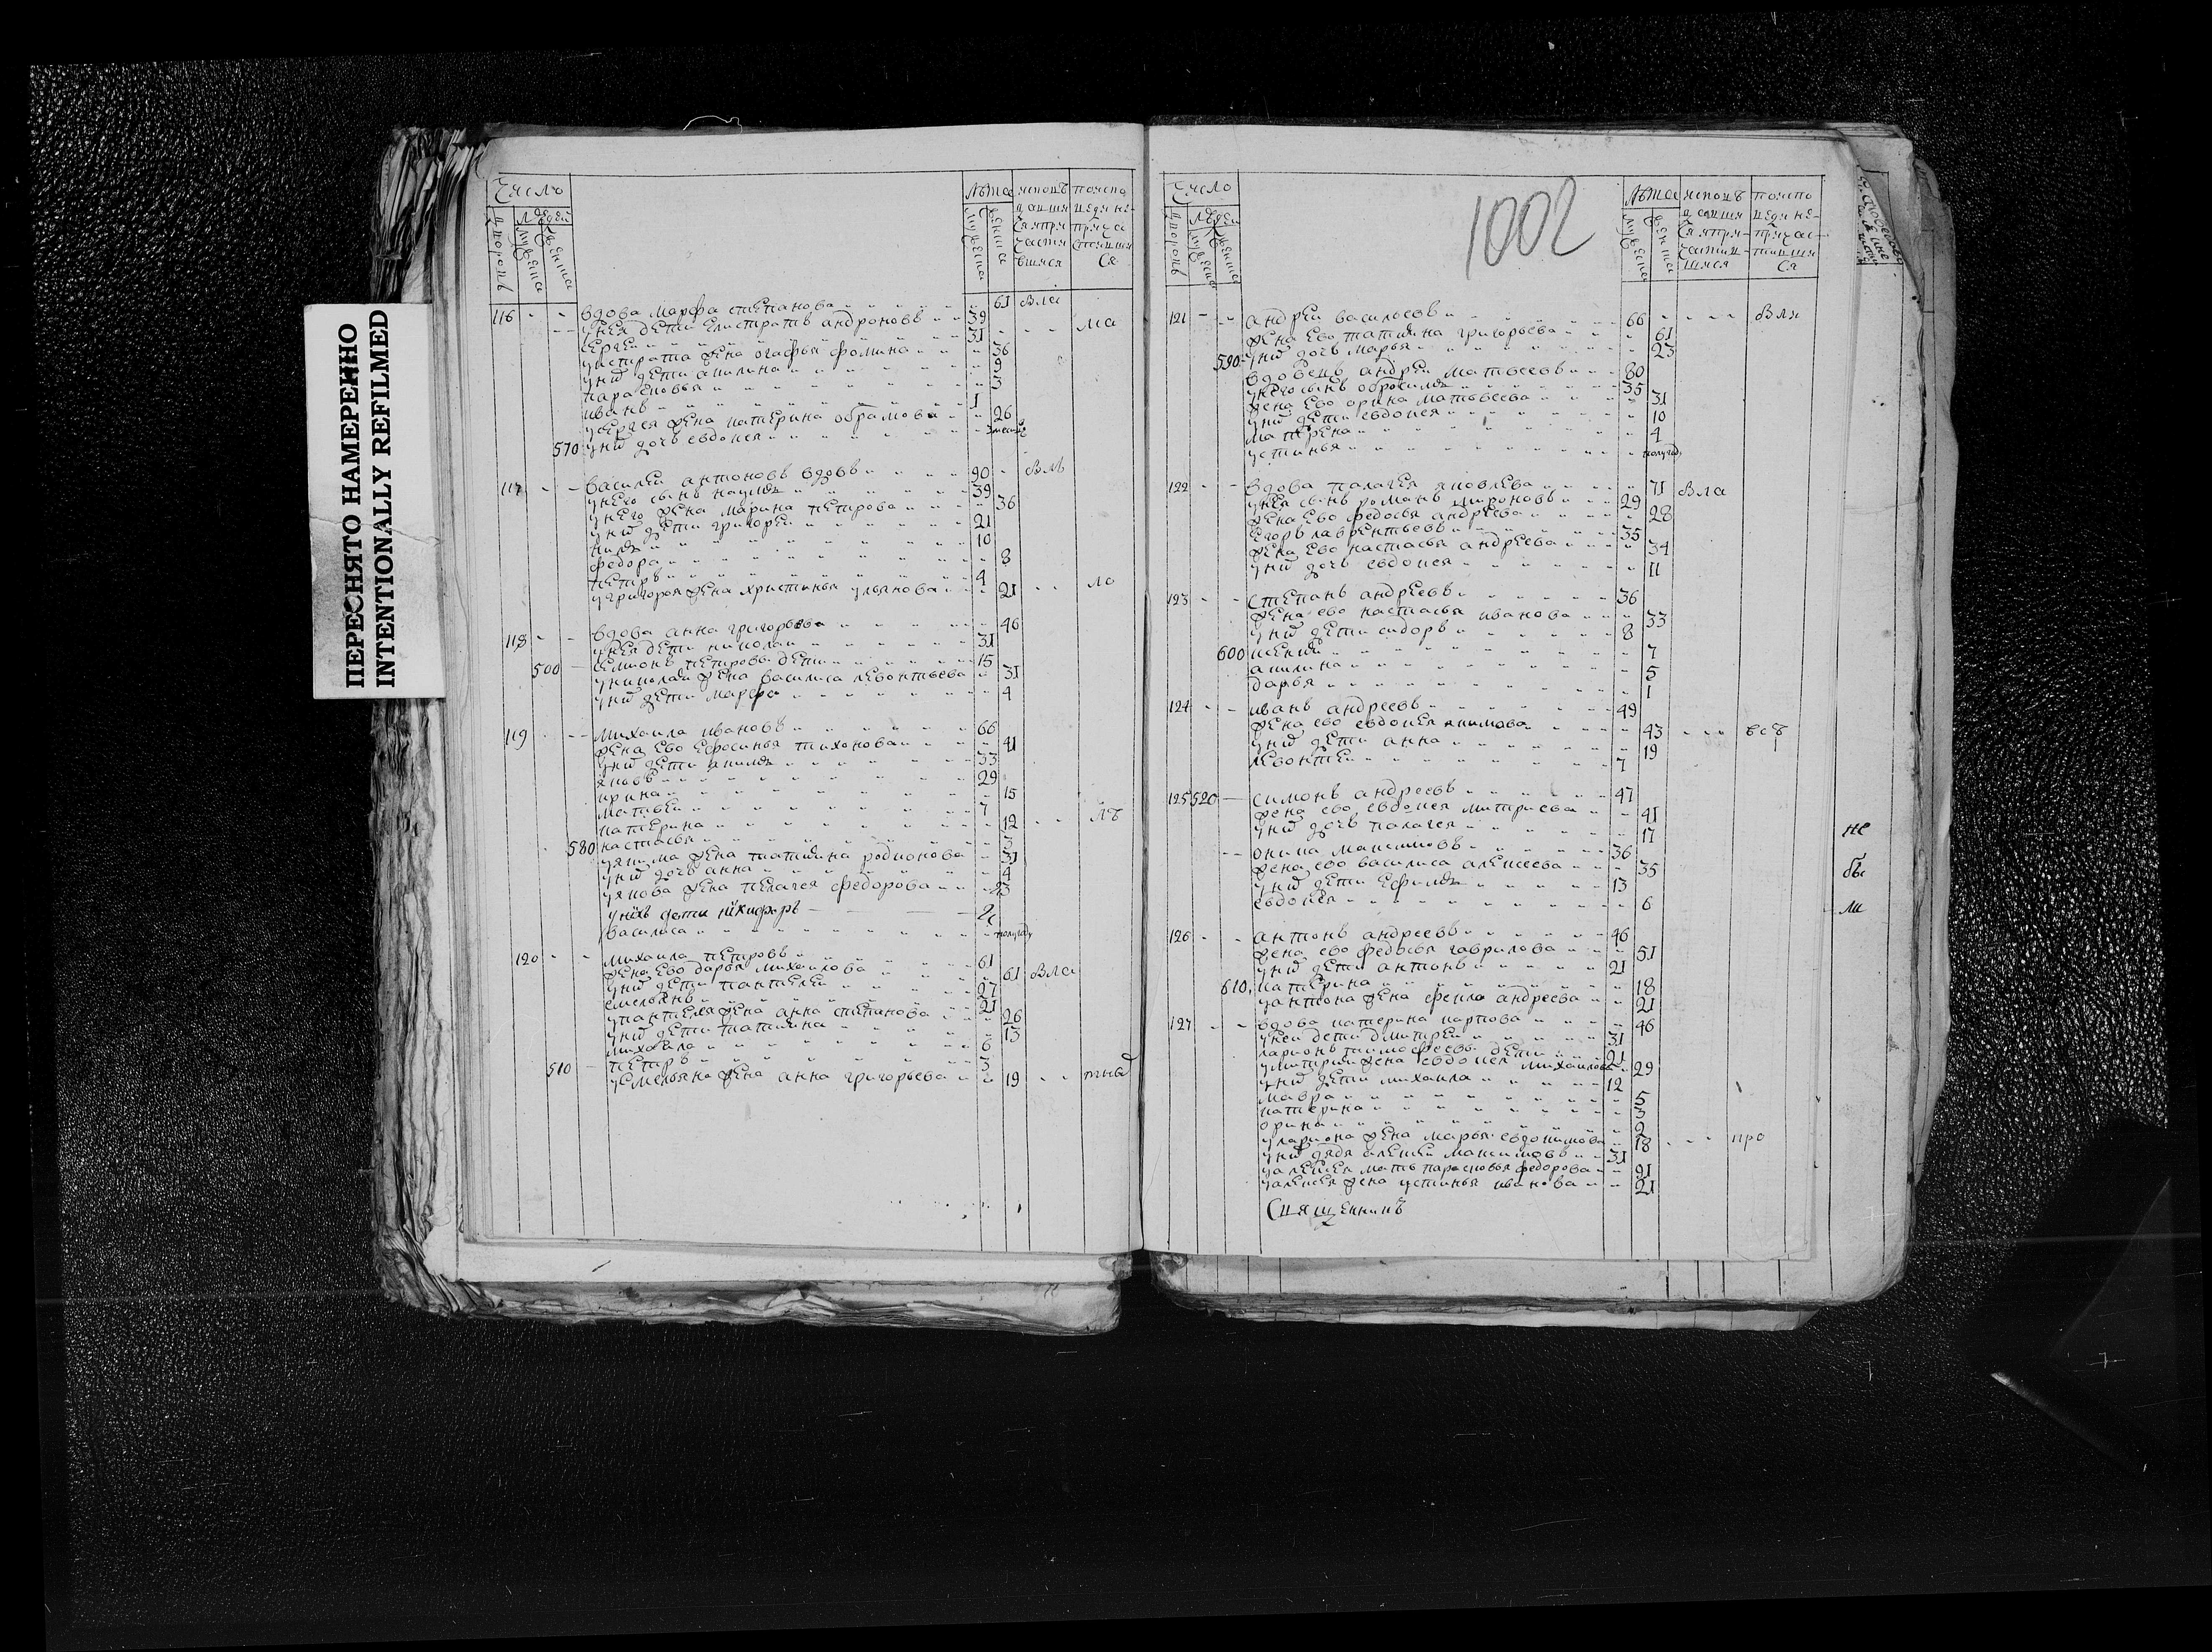 ПЕРЕСНЯТО НАМЕРЕННО
INTENTIONALLY REFILMED
Число
Лѣта
дворовъ
людей
мужеска
женска
мужеска
женска
116 - - вдова марфа степанова 61 Вла
у нея дети елистратъ андроновъ 39
сергеи 31 - - ма
у листрата жена огафья фомина 36
у них дети акилина 9
парасковья 3
иванъ 1
у сергея жена катерина обрамова 26
570 у них дочь евдокея
117 - - василеи антоновъ вдовъ 90 - Вл
у него сынъ наумъ 39
у него жена марина петрова 36
у них дети григореи 21
10
федора 8
петръ 4
у григорея жена христинья ульянова 21 - - ло
118 - - вдова анна григорьева 46
у нея дети николаи 31
500 семионъ петровы дети 15
у николаи жена василиса левонтьева 31
у них дети марфа 4
119 - - михаила ивановъ 66
жена ево ефросинья тихонова 41
у них дети якимъ 33
яковъ 29
ирина 15
матвеи 7
катерина 12
580 настасья 3
у якима жена татияна родионова 31
у них дочь анна 4
у якова жена пелагея федорова 23
у нихъ дети никифоръ 2
василиса полугоду
120 - - михаила петровъ 61
жена ево дарья михаилова 61 Вла
у них дети пантелеи 27
емельянъ 21
у пантелея жена анна степанова 26
у них дети татияна 13
михаила 6
510 петръ 3
у емельяна жена анна григорьева 19
1002
Число
Лѣта
дворовъ
людей
мужеска
женска
мужеска
женска
121 - - андреи василеевъ 66 - - - Вля
жена ево татияна григорьева 61
590 у них дочь марья 23
вдовецъ андреи матвеевъ 80
у него сынъ обросимъ 35
жена ево орина матвеева 31
у них дети евдокея 10
матрена 4
устинья полугоду
122 - - вдова палагея яковлева 71 Вла
у нея сынъ романъ мироновъ 29
жена ево федосья андреева 28
егоръ лаврентьевъ 35
жена ево настасья андреева 34
у них дочь евдокея 11
123 - - степанъ андреевъ 36
жена ево настасья иванова 33
у них дети сидоръ 8
600 7
акилина 5
дарья 1
124 - - иванъ андреевъ 49
жена ево евдокея якимова 43
у них дети анна 19
левонтеи 7
125 520 - симонъ андреевъ 47
жена ево евдокея митриева 41
у них дочь палагея 17
- - окила максимовъ 36
жена ево василиса алексеева 35
у них дети ефимъ 13
евдокея 6
126 - - антонъ андреевъ 46
жена ево федосья гаврилова 51
у них дети антонъ 21
610 катерина 18
у антона жена фекла андреева 21
127 - - вдова катерина карпова 46
у неи дети дмитреи 31
ларионъ тимофеевы дети 21
у митрия жена евдокея михаилова 29
у них дети михаила 12
мавра 5
катерина 3
орина 2
у лариона жена марья евдокимова 18 - - - про
у них дядя алексеи максимовъ 31
у алексея мать парасковья федорова 91
у алексея жена устинья иванова 21
Священникъ
не
бы
ли